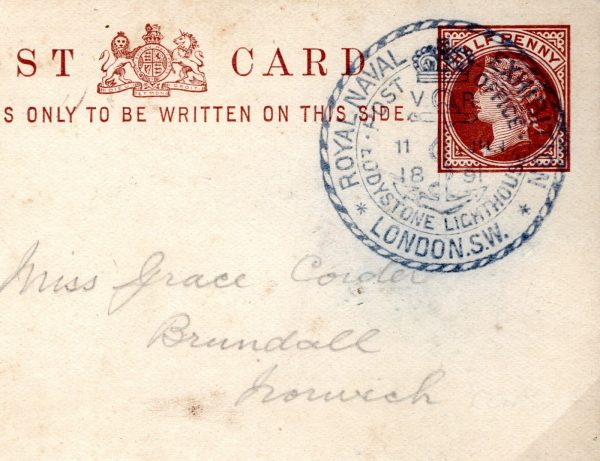 ST CARD
S ONLY TO BE WRITTEN ON THIS SIDE.
HALF PENNY
ROYAL NAVAL EXHIBITION
POST OFFICE
V R
11
18 91
EDDYSTONE LIGHTHOUSE
* LONDON.S.W. *
Miss Grace Corder
Brundall
Norwich